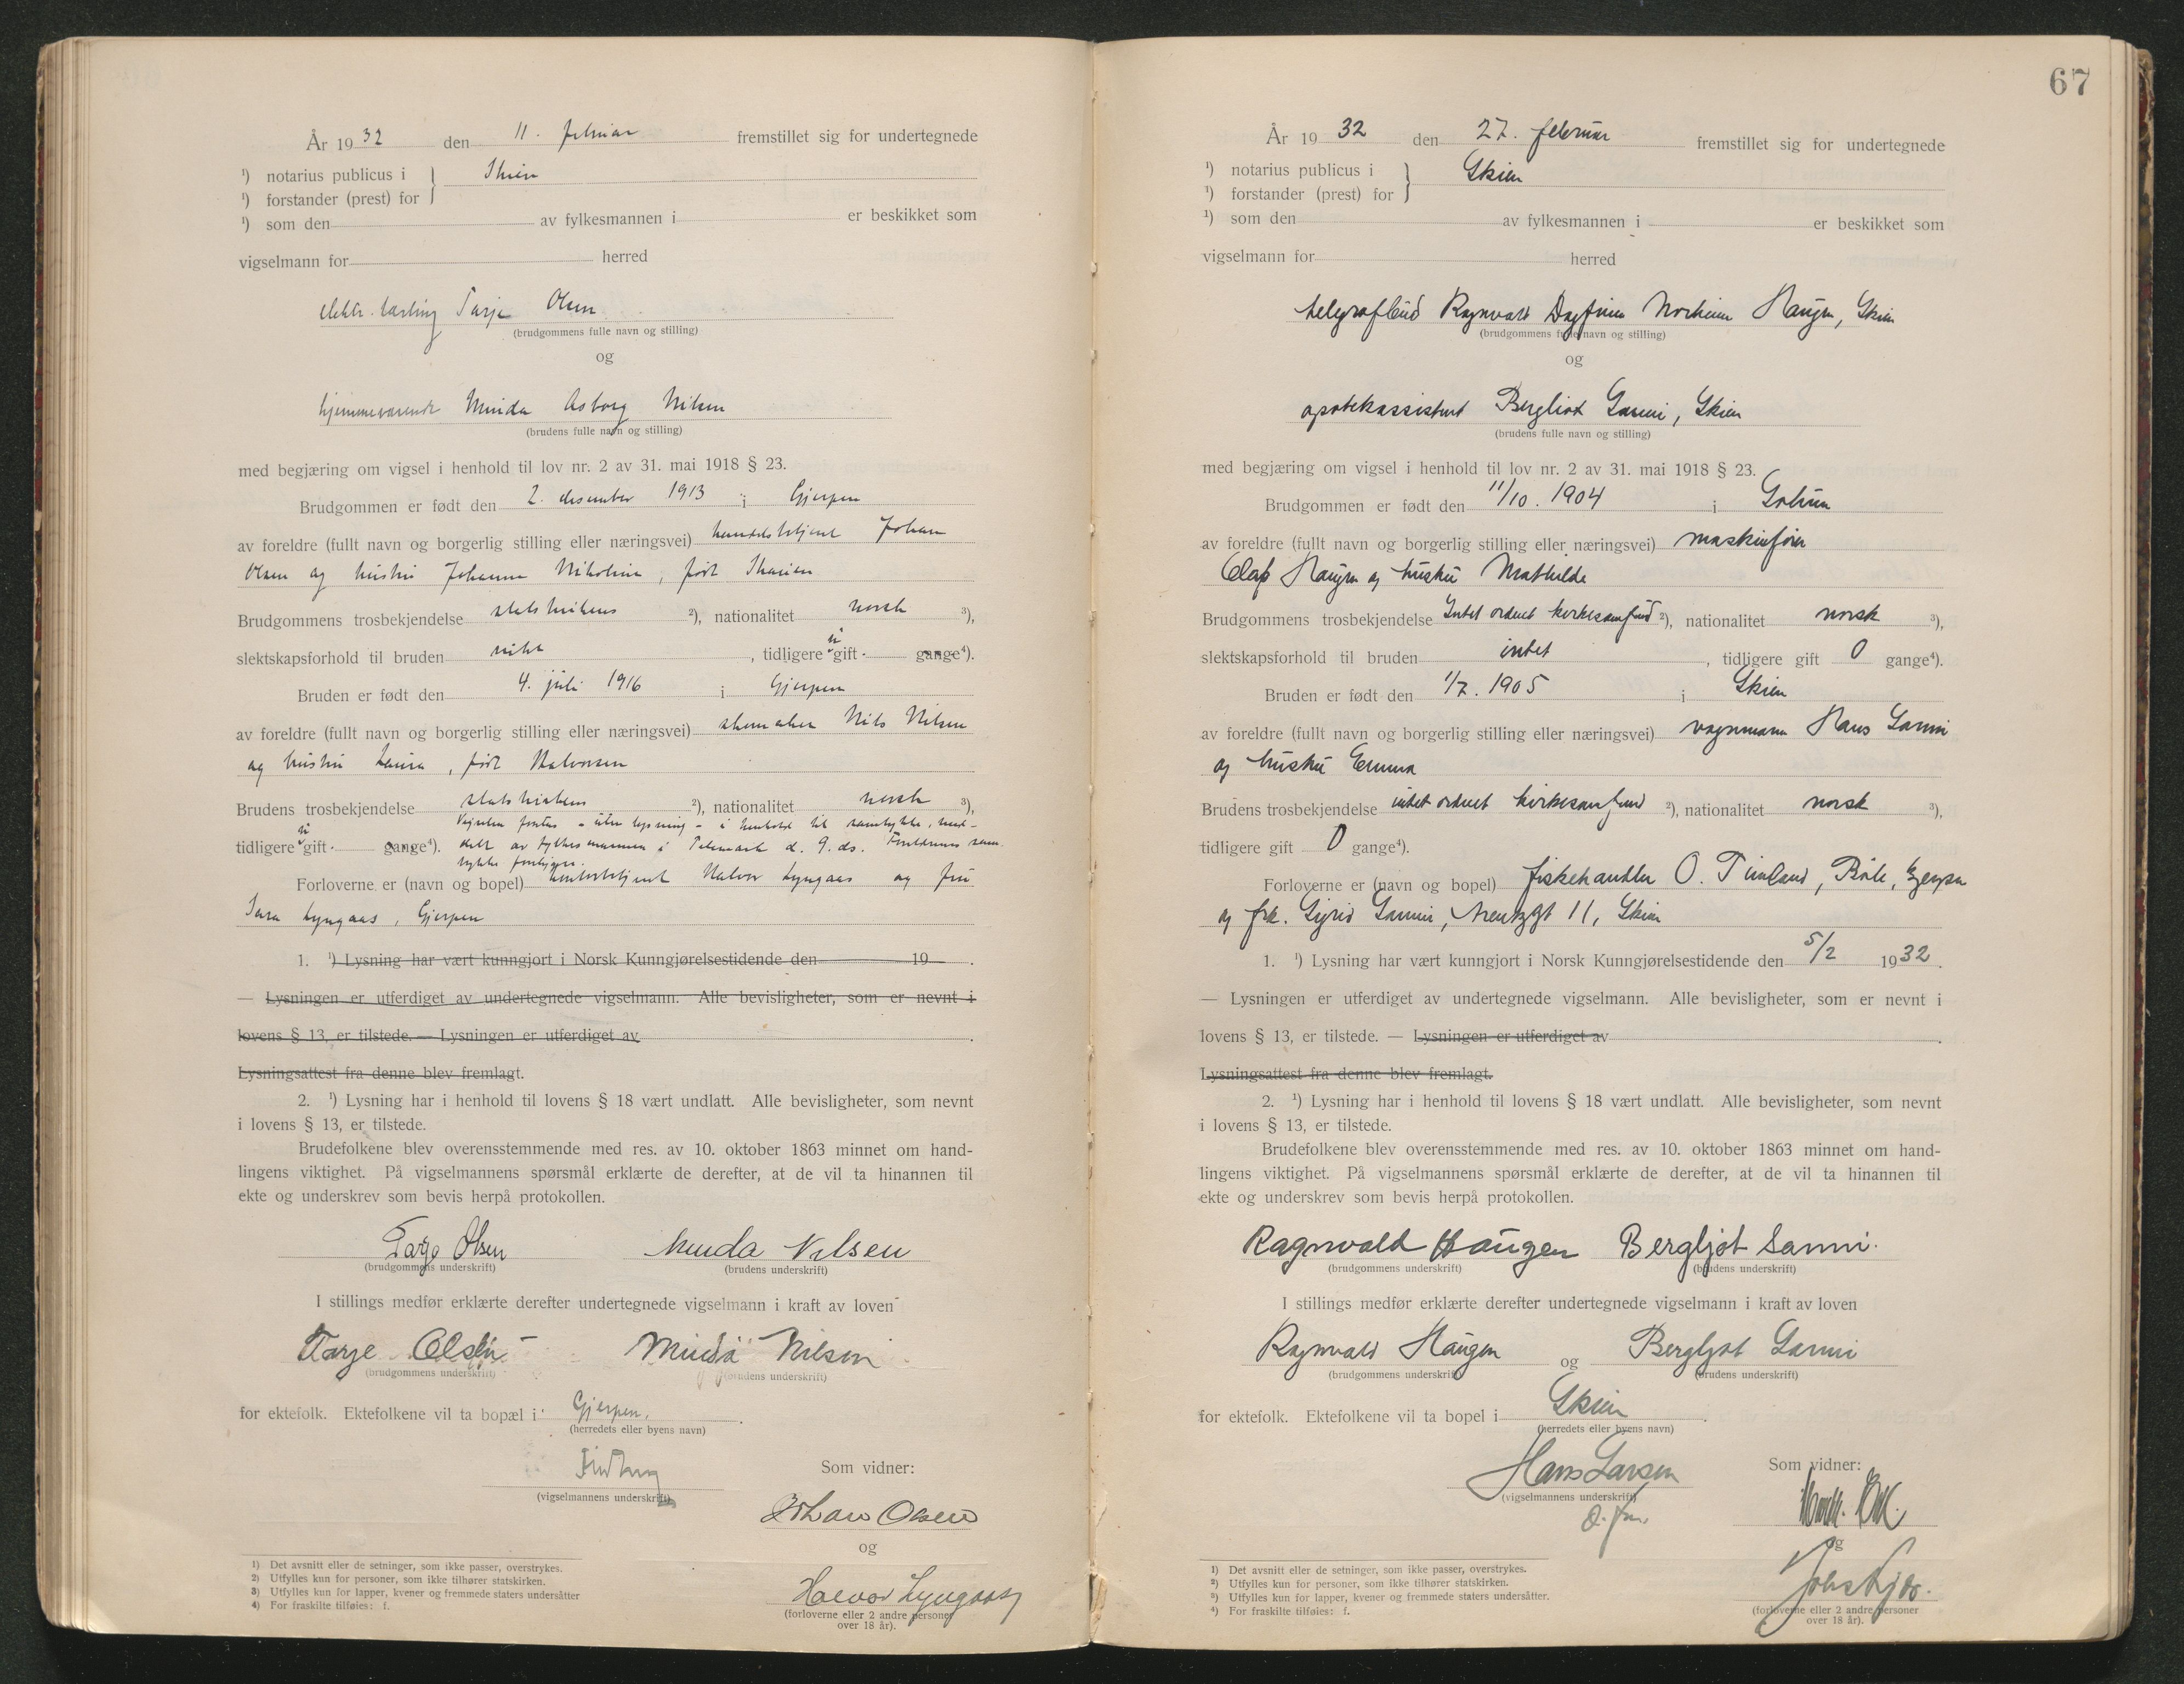 År 1932 den 11. februar fremstillet sig for undertegnede
¹) notarius publicus i } Skien
¹) forstander (prest) for
¹) som den av fylkesmannen i er beskikket som
vigselmann for herred
elektr. lærling Tarje Olsen
(brudgommens fulle navn og stilling)
og
hjemmeværende Minda Asborg Nilsen
(brudens fulle navn og stilling)
med begjæring om vigsel i henhold til lov nr. 2 av 31. mai 1918 § 23.
Brudgommen er født den 2. desember 1913 i Gjerpen
av foreldre (fullt navn og borgerlig stilling eller næringsvei) handelsbetjent Johan
Olsen og hustru Johanna Nikoline, født
Brudgommens trosbekjendelse statskirkens ²), nationalitet norsk ³),
slektskapsforhold til bruden intet, tidligere ei gift gange⁴).
Bruden er født den 4. juli 1916 i Gjerpen
av foreldre (fullt navn og borgerlig stilling eller næringsvei) skomaker Nils Nilsen
og hustru Laura, født Halvorsen
Brudens trosbekjendelse statskirkens ²), nationalitet norsk ³),
Vigselen foretas - uten lysning - i henhold til samtykke, med-
tidligere ei gift gange⁴). delt av fylkesmannen i Telemark d. 9. ds. Foreldrenes sam-
tykke foreligger.
Forloverne er (navn og bopel) kontorbetjent Halvor Lyngaas og fru
Sara Lyngaas, Gjerpen
1. ¹) Lysning har vært kunngjort i Norsk Kunngjørelsestidende den 19 .
— Lysningen er utferdiget av undertegnede vigselmann. Alle bevisligheter, som er nevnt i
lovens § 13, er tilstede. — Lysningen er utferdiget av .
Lysningsattest fra denne blev fremlagt.
2. ¹) Lysning har i henhold til lovens § 18 vært undlatt. Alle bevisligheter, som nevnt
i lovens § 13, er tilstede.
Brudefolkene blev overensstemmende med res. av 10. oktober 1863 minnet om hand-
lingens viktighet. På vigselmannens spørsmål erklærte de derefter, at de vil ta hinannen til
ekte og underskrev som bevis herpå protokollen.
Tarje Olsen Minda Nilsen
(brudgommens underskrift) (brudens underskrift)
I stillings medfør erklærte derefter undertegnede vigselmann i kraft av loven
Tarje Olsen Minda Nilsen
(brudgommens underskrift) (brudens underskrift)
for ektefolk. Ektefolkene vil ta bopæl i Gjerpen.
(herredets eller byens navn)
Som vidner:
(vigselmannens underskrift)
Johan Olsen
og
Halvor Lyngaas
(forloverne eller 2 andre personer
over 18 år).
1) Det avsnitt eller de setninger, som ikke passer, overstrykes.
2) Utfylles kun for personer, som ikke tilhører statskirken.
3) Utfylles kun for lapper, kvener og fremmede staters undersåtter
4) For fraskilte tilføies: f.
67
År 1932 den 27. februar fremstillet sig for undertegnede
¹) notarius publicus i } Skien
¹) forstander (prest) for
¹) som den av fylkesmannen i er beskikket som
vigselmann for herred
telegrafbud Ragnvald Dagfinn Norheim Haugen, Skien
(brudgommens fulle navn og stilling)
og
apotekassistent Bergliot Sanni, Skien
(brudens fulle navn og stilling)
med begjæring om vigsel i henhold til lov nr. 2 av 31. mai 1918 § 23.
Brudgommen er født den 11/10. 1904 i Solum
av foreldre (fullt navn og borgerlig stilling eller næringsvei) maskinfører
Olaf Haugen og hustru Mathilde
Brudgommens trosbekjendelse Intet ordnet kirkesamfund ²), nationalitet norsk ³),
slektskapsforhold til bruden intet, tidligere gift 0 gange⁴).
Bruden er født den 1/7. 1905 i Skien
av foreldre (fullt navn og borgerlig stilling eller næringsvei) vognmann Hans Sanni
og hustru Emma
Brudens trosbekjendelse intet ordnet kirkesamfund ²), nationalitet norsk ³),
tidligere gift 0 gange⁴).
Forloverne er (navn og bopel) fiskehandler O. Timland, Bøle, Gjerpen
og frk. Sigrid Sanni, Arentzgt 11, Skien
1. ¹) Lysning har vært kunngjort i Norsk Kunngjørelsestidende den 5/2 1932.
— Lysningen er utferdiget av undertegnede vigselmann. Alle bevisligheter, som er nevnt i
lovens § 13, er tilstede. — Lysningen er utferdiget av .
Lysningsattest fra denne blev fremlagt.
2. ¹) Lysning har i henhold til lovens § 18 vært undlatt. Alle bevisligheter, som nevnt
i lovens § 13, er tilstede.
Brudefolkene blev overensstemmende med res. av 10. oktober 1863 minnet om hand-
lingens viktighet. På vigselmannens spørsmål erklærte de derefter, at de vil ta hinannen til
ekte og underskrev som bevis herpå protokollen.
Ragnvald Haugen Bergljot Sanni.
(brudgommens underskrift) (brudens underskrift)
I stillings medfør erklærte derefter undertegnede vigselmann i kraft av loven
Ragnvald Haugen og Bergljot Sanni
(brudgommens underskrift) (brudens underskrift)
for ektefolk. Ektefolkene vil ta bopel i Skien.
(herredets eller byens navn)
Hans Larsen Som vidner:
(vigselmannens underskrift)
og
(forloverne eller 2 andre personer
over 18 år).
1) Det avsnitt eller de setninger, som ikke passer, overstrykes.
2) Utfylles kun for personer, som ikke tilhører statskirken.
3) Utfylles kun for lapper, kvener og fremmede staters undersåtter.
4) For fraskilte tilføies: f.